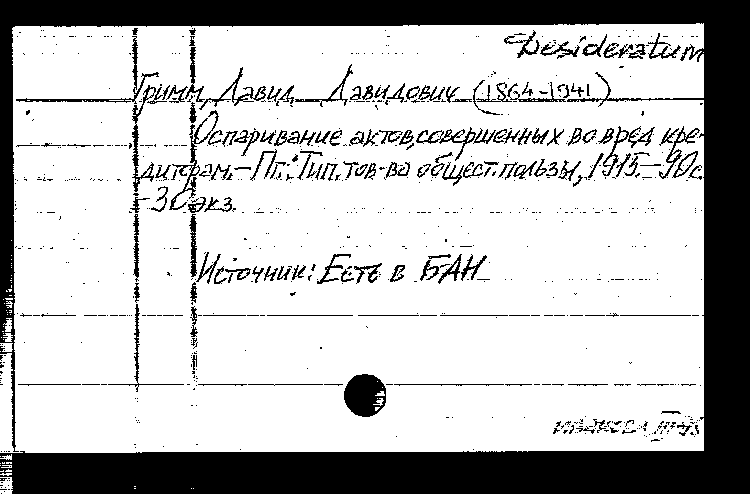 Desideratum
Гримм, Давид Давидович (1864-1941)
Оспаривание актов, совершенных во вред кре-
диторам. – Пг.: Тип. тов-ва обществ. пользы, 1915. – 90с.
- 30 экз.
Источник: Есть в БАН